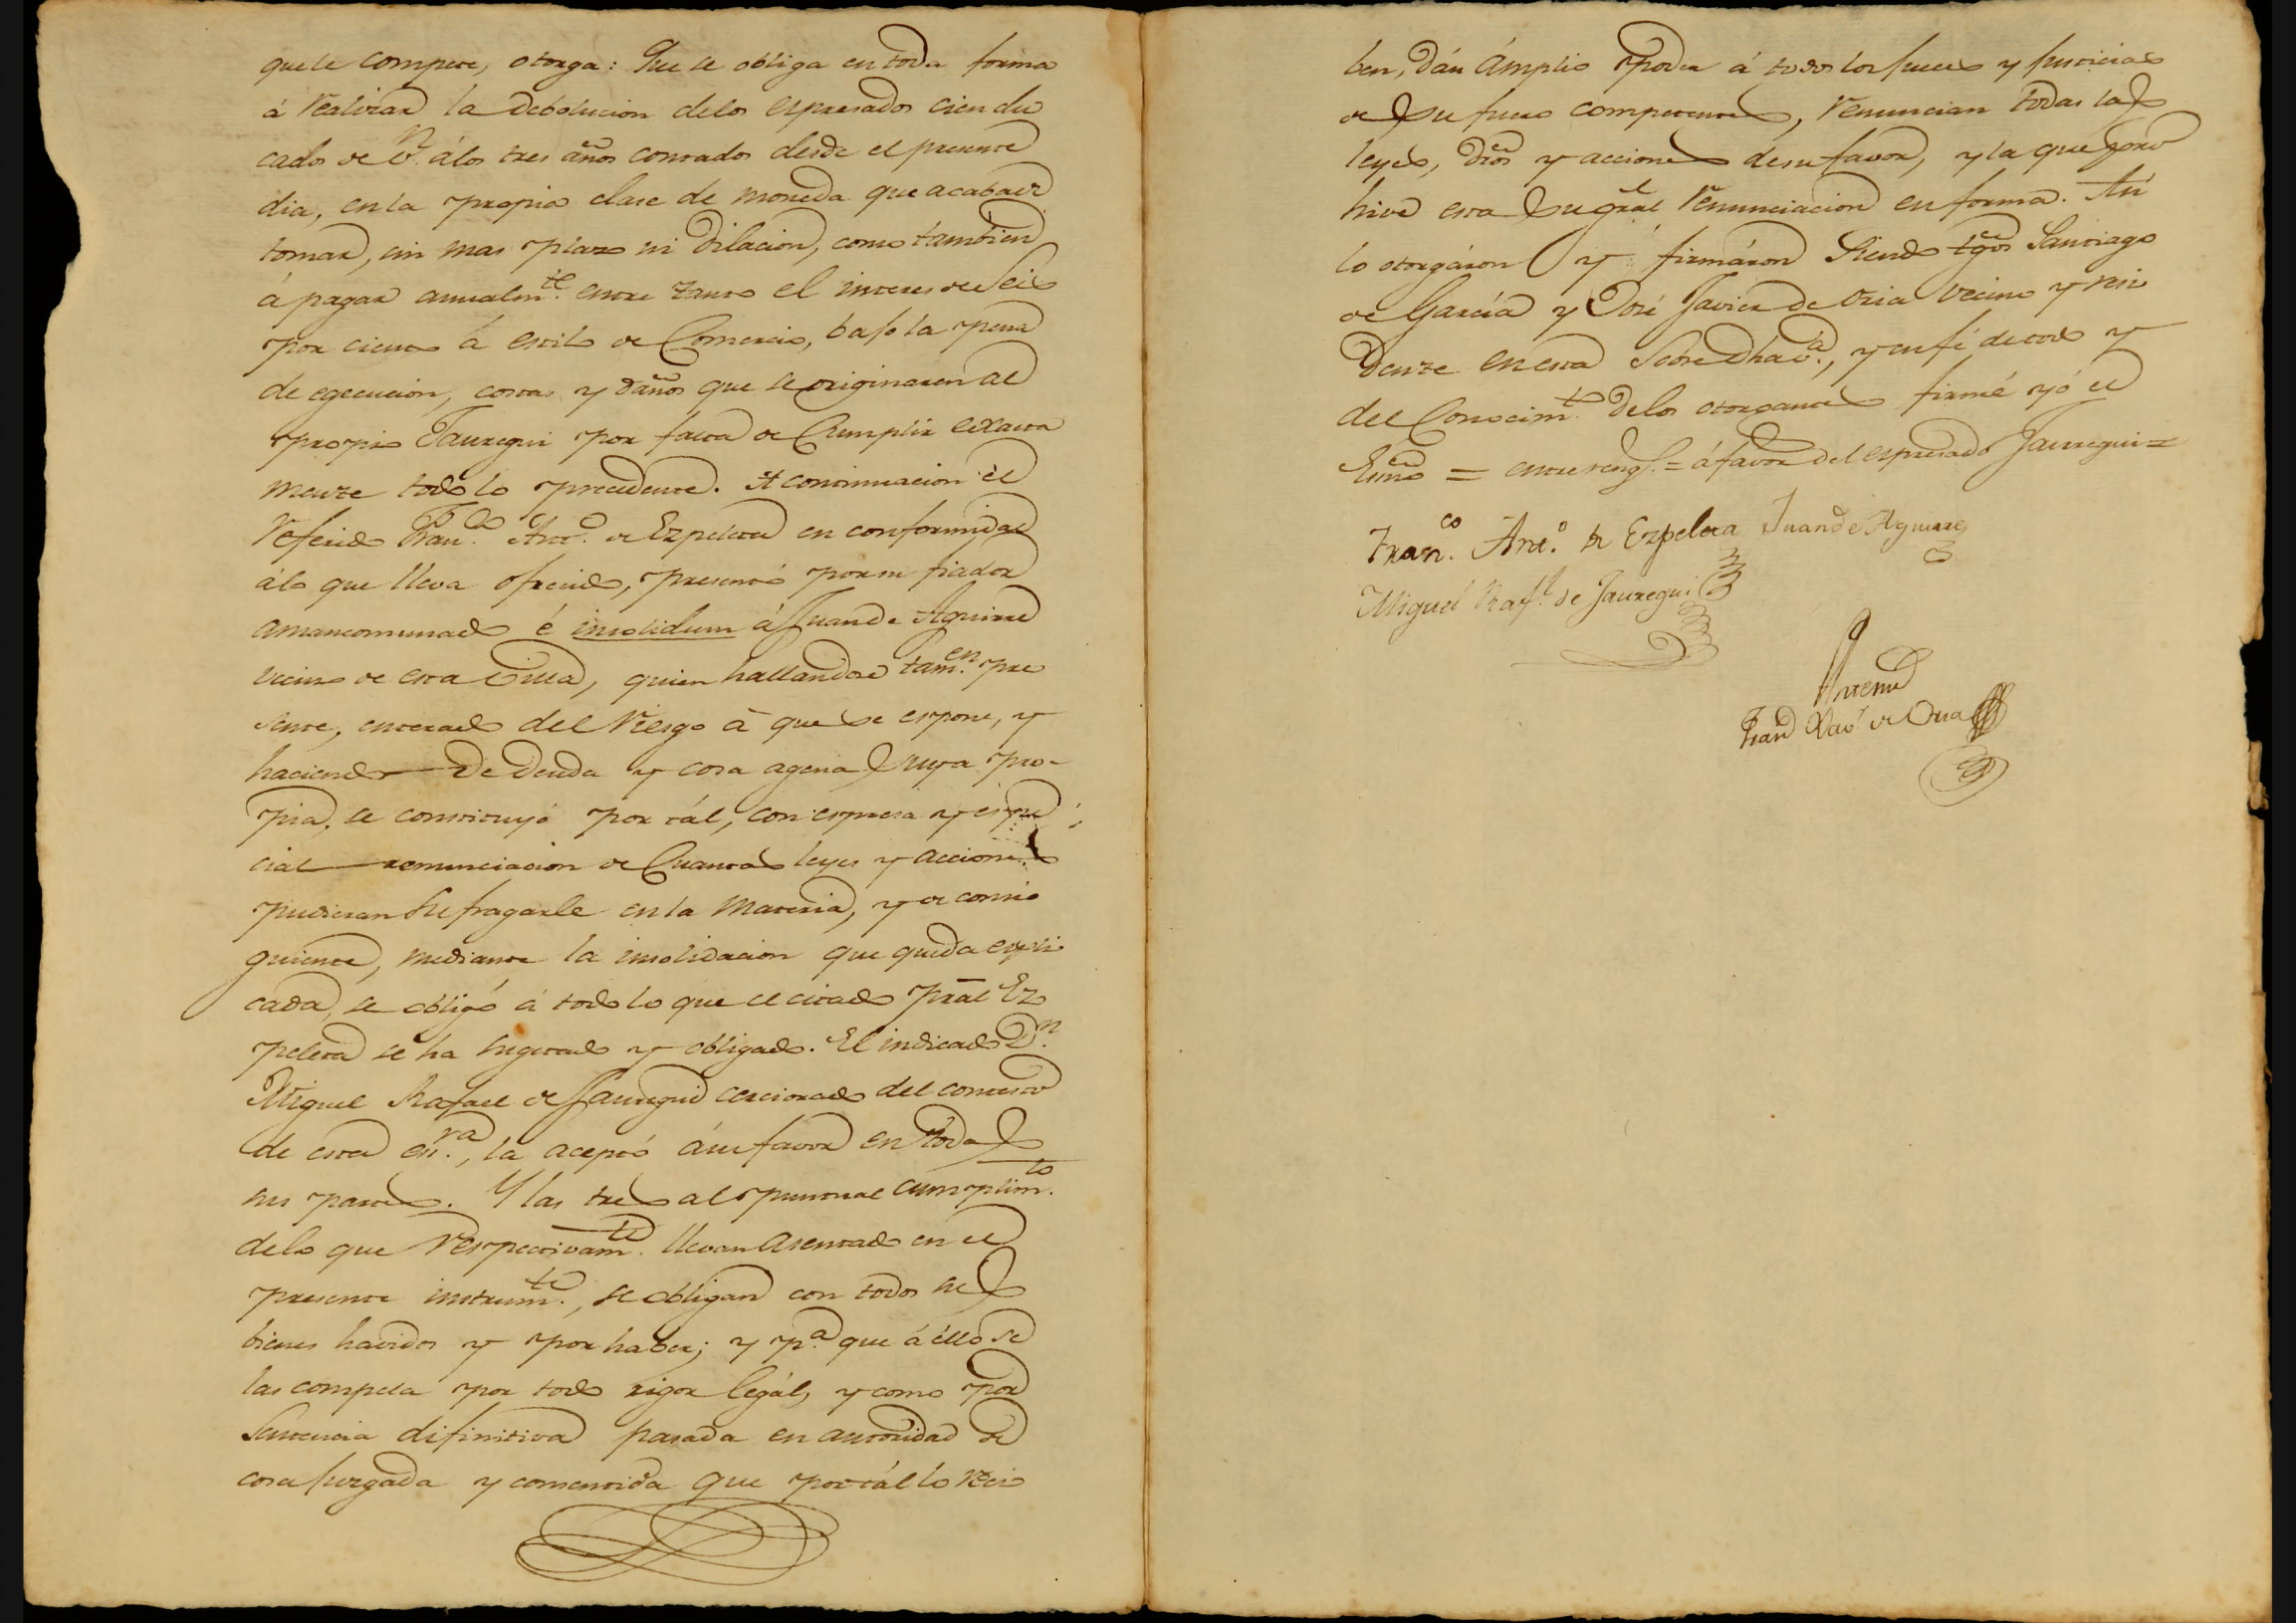 que le compete, otorga: Que se obliga en toda forma
á realizar la debolucion delos espresados cien du
cados de v.n álos tres años contados desde el presente
dia, en la propia clase de moneda que acaba de
tomar, sin mas plazo ni dilacion, como tambien
á pagar anualm.te entre tanto el interes de seis
por ciento á estilo de Comercio, bajo la pena
de egecucion, costas y daños que se originaren al
propio Jauregui por falta de Cumplir exacta
mente todo lo precedente. A continuacion el
referido Fran.co Ant.o de Ezpeleta en conformidad
álo que lleva ofrecido, presentó por su fiador
amancomunado é insolidum á Juan de Aguirre
vecino de esta Villa, quien hallandose tam.en pre
sente, enterado del riesgo á que se espone, y
haciendo de deuda y cosa agena suya pro-
pia, se constituyó por tál, con espresa y espe
cial renunciacion de Cuantas leyes y acciones
pudieran sufragarle en la materia, y de consi
guiente, mediante la insolidacion que queda espli
cada, se obligó á todo lo que el citado pral Ez
peleta se ha sugetado y obligado. El indicado D.n
Miguel Rafael de Jauregui cerciorado del contesto
de esta es.ra, la aceptó á su favor en todas
sus partes. Y las tres al puntual cumplim.to
delo que respectivam.te llevan asentado en el
presente instrum.to, se obligan con todos sus
bienes havidos y por haber; y p.a que á éllo se
las compela por todo rigor legál, y como por
sentencia difinitiva pasada en autoridad de
cosa juzgada y consentida que por tál lo reci
ben, dán ámplio poder á todos los jueces y justicias
de su fuero competentes, renuncian todas las
leyes, dros y acciones de su favor, y la que proh
hive esta su gral renunciacion en forma. Así
lo otorgáron y firmáron siendo tgos Santiago
de García y José Javier de Oria vecino y resi
dente en esta sobre dha v.a, y en fé de todo y
del Conocim.to delos otorgantes firmé yó el
Esno = entre reng.s = á favor del espresado Jauregui =
Fran.co Ant.o de Ezpeleta Juan de Aguirre
Miguel Raf.l de Jauregui
Ante mi
Juan Xav.r de Oria